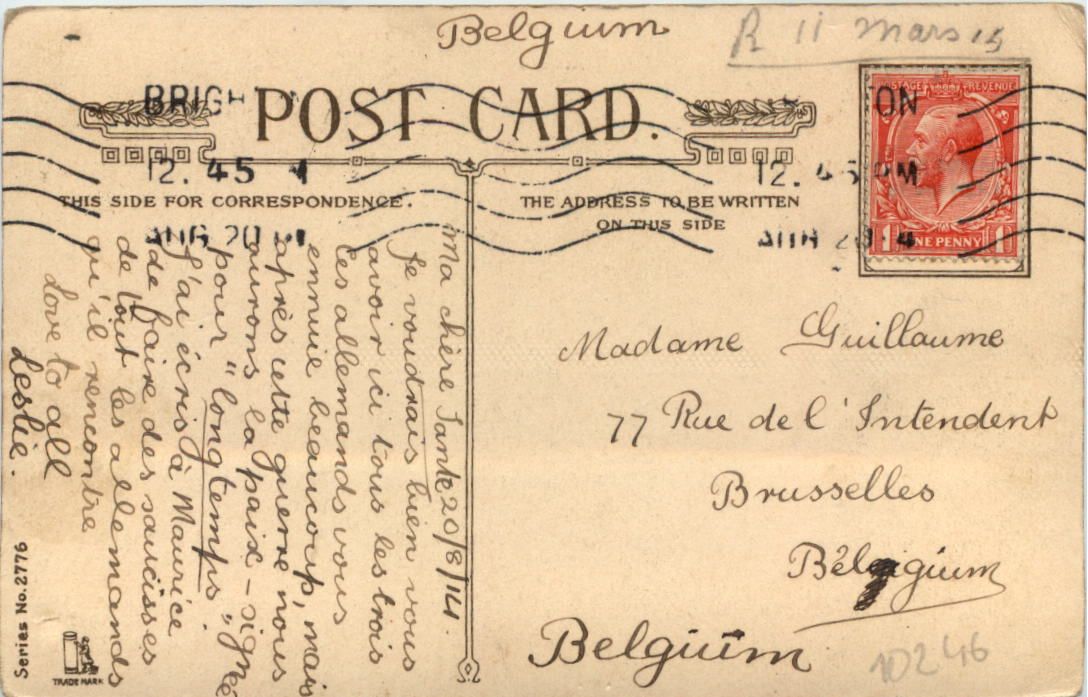 Belgium
R 11 mars 15
BRIGH ON
POST CARD.
POSTAGE REVENUE
12. 45 12. 45 PM
THIS SIDE FOR CORRESPONDENCE.
THE ADDRESS TO BE WRITTEN
ON THIS SIDE
AUG 20 14 AUG 20 14
1 ONE PENNY 1
Ma chère Tante 20/8/14.
Je voudrais bien vous
avoir ici tous les trois
Les allemands vous
ennuie beaucoup, mais
après cette guerre nous
aurons la paix – signé
pour "longtemps"
J'ai écris à Maurice
de faire des saucisses
de tout les allemands
qu'il rencontre
Love to all
Leslie.
Madame Guillaume
77 Rue de l'Intendent
Brusselles
Bélgium
Belgium
10246
Series No. 2776
TRADE MARK